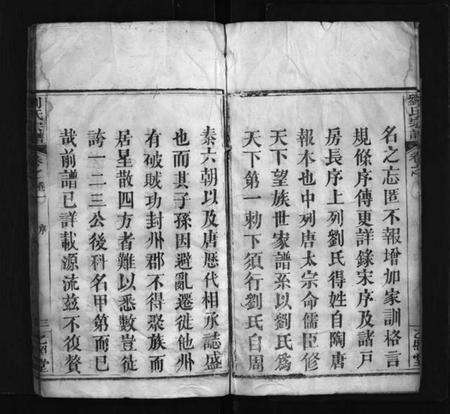 名之忘匿不報增加家訓格言
規條序傳更詳錄宋序及諸戶
房長序上列劉氏得姓自陶唐
報本也中列唐太宗命儒臣修
天下望族世家譜系以劉氏爲
天下第一勅下須行劉氏自周
秦六朝以及唐歷代相承誌盛
也而其子孫因避亂遷徙他州
有破賊功封州郡不得聚族而
居星散四方者難以悉數豈徒
誇一二三公後科名甲第而已
哉前譜已詳載源流茲不復贅
劉氏宗譜
卷之
序
三
堂